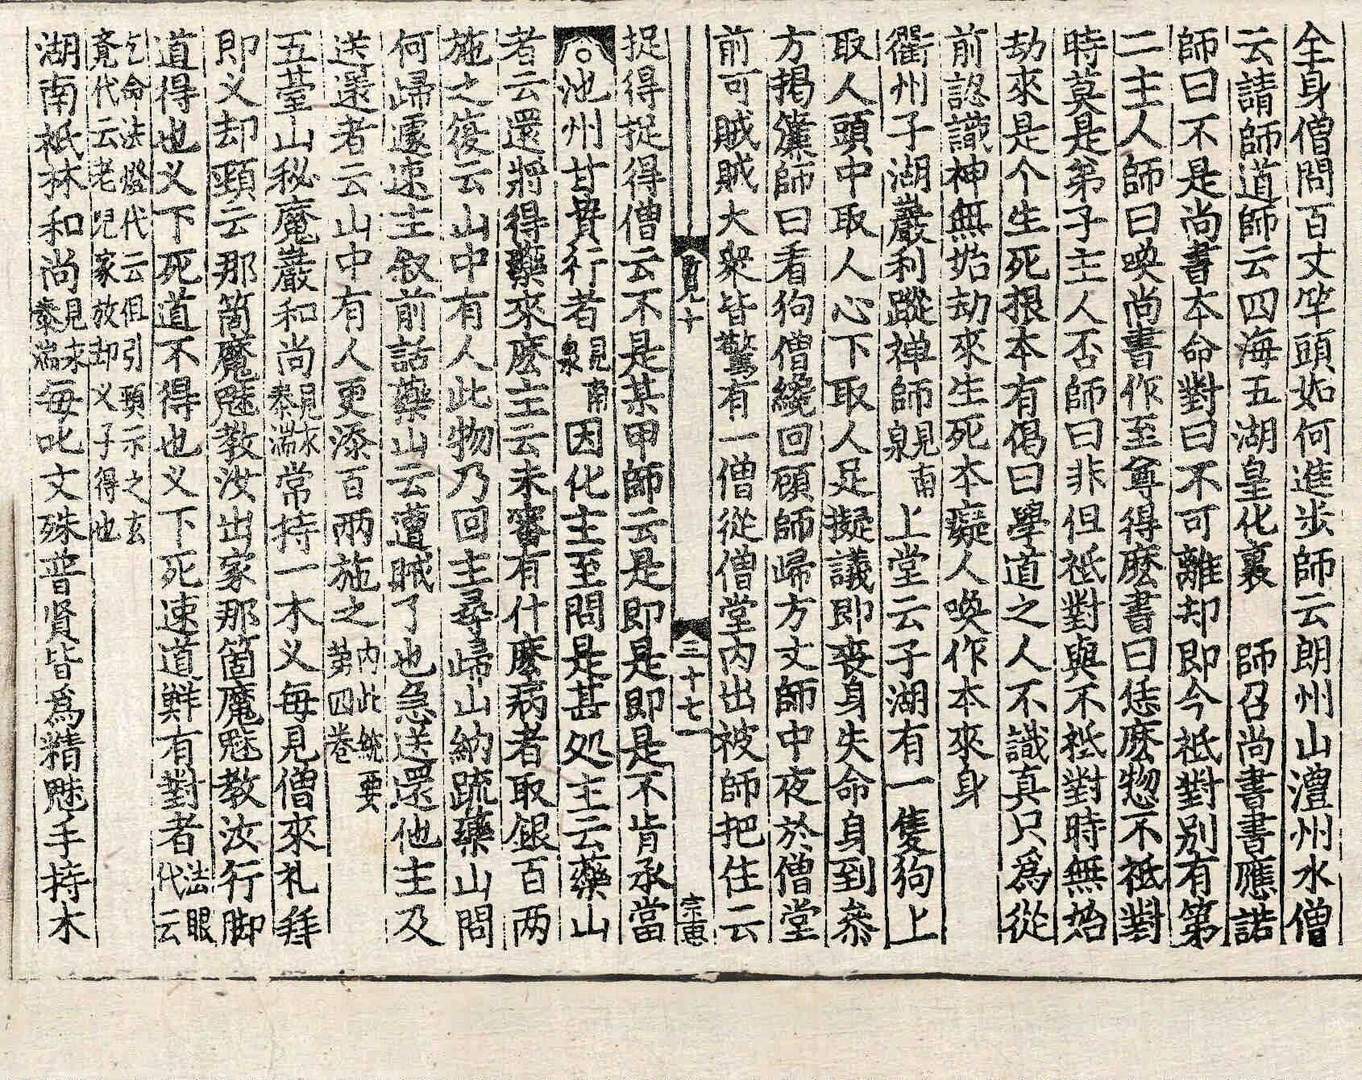 全身僧問百丈竿頭如何進步師云朗州山澧州水僧
云請師道師云四海五湖皇化裏　師召尚書書應諾
師曰不是尚書本命對曰不可離却即今祗對别有第
二主人師曰喚尚書作至尊得麽書曰恁麽惣不祗對
時莫是弟子主人否師曰非但祗對與不祗對時無始
劫來是个生死根本有偈曰學道之人不識真只爲從
前認識神無始劫來生死本癡人喚作本來身
衢州子湖巖利蹤禅師見南泉上堂云子湖有一隻狗上
取人頭中取人心下取人足擬議即喪身失命身到叅
方揭簾師曰看狗僧纔回顧師歸方丈師中夜於僧堂
前叫賊賊大衆皆驚有一僧從僧堂内出被師把住云
貞十
三十七
宗惠
捉得捉得僧云不是某甲師云是即是即是不肯承當
○池州甘贄行者見南泉因化主至問是甚処主云藥山
者云還將得藥來麽主云未審有什麽病者取銀百两
施之復云山中有人此物乃回主尋歸山納疏藥山問
何歸遽速主叙前話藥山云遭賊了也急送還他主及
送還者云山中有人更添百两施之内此統要第四卷
五䑓山秘魔巖和尚見永泰湍常持一木义每見僧來礼拜
即义却頸云那箇魔魅教汝出家那箇魔魅教汝行脚
道得也义下死道不得也义下死速道鮮有對者法眼代云
乞命法燈代云但引頸示之玄
覔代云老児家放却义子得也
湖南祇林和尚見永泰湍每叱文殊普贤皆爲精魅手持木